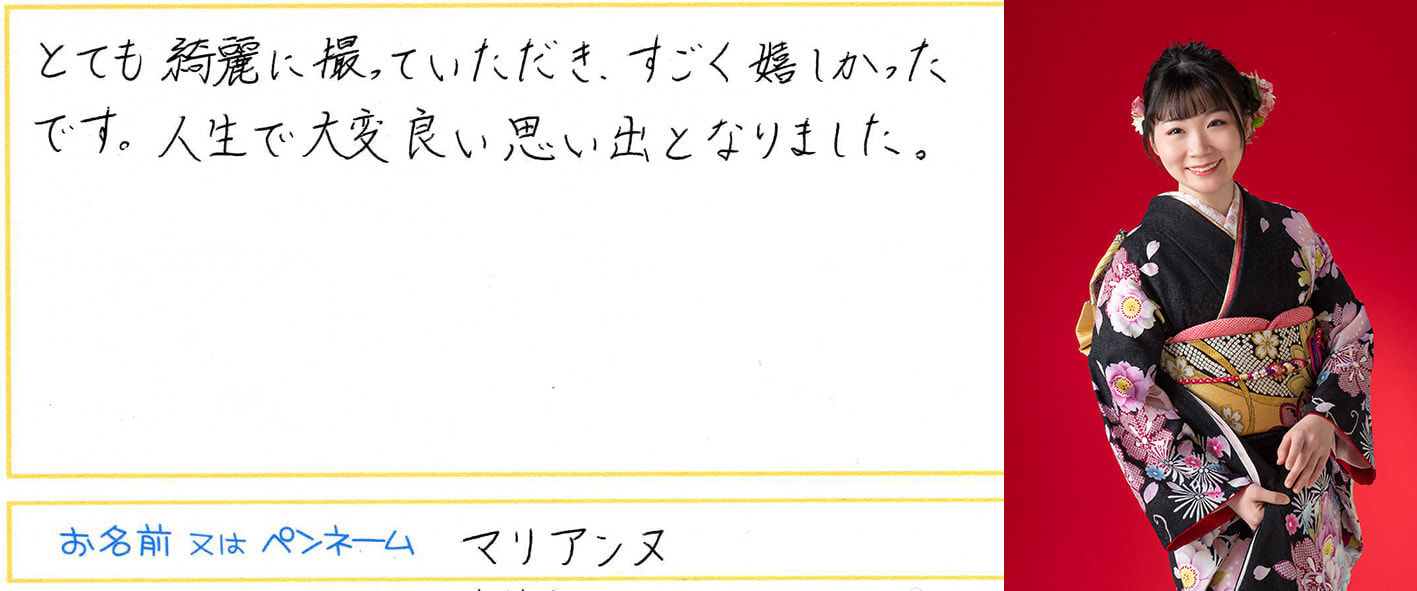 とても綺麗に撮っていただき、すごく嬉しかった
です。人生で大変良い思い出となりました。
お名前 又は ペンネーム マリアンヌ